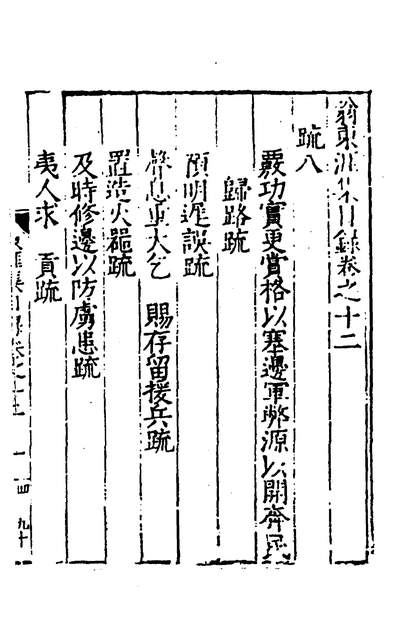 翁東涯集目錄卷之十二
疏八
覈功實更賞格以塞邊軍弊源以開齊民
歸路疏
預明遲誤疏
聲息重大乞　賜存留援兵疏
置造火噐疏
及時修邊以防虜患疏
夷人求　貢疏
東涯集目錄卷之十二　一